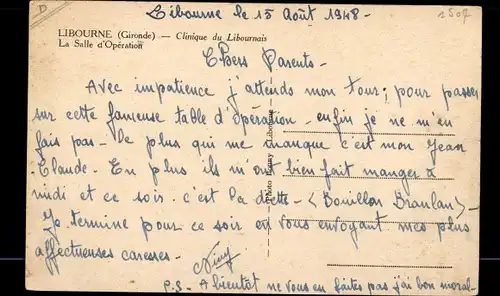 D
Libourne le 15 Août 1948 -
2502
LIBOURNE (Gironde) — Clinique du Libournais
La Salle d'Opération
Chers Parents -
Avec impatience j'attends mon tour ; pour passer
sur cette fameuse table d'opération - enfin je ne m'en
fais pas - le plus qui me manque c'est mon Jean
Claude. En plus ils m'ont bien fait manger à
midi et ce soir c'est la diète - (Bouillon Branlan) -
Je termine pour ce soir en vous envoyant mes plus
affectueuses caresses -
P.S. - A bientôt ne vous en faites pas j'ai bon moral -
Photo Libourne